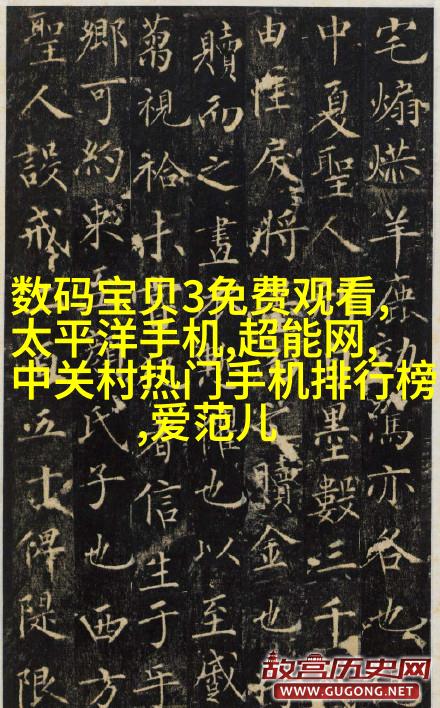 宅煽羊鹿亦各也
中夏聖人墨數三千
由將贖金也
贖而之盡也以至戲
視信生于
鄉可約束氏子也西方
聖人設戒五十俾隄限
数码宝贝3免费观看,
太平洋手机,超能网,
中关村热门手机排行榜
,爱范儿
故宫历史网
WWW.GUGONG.NET